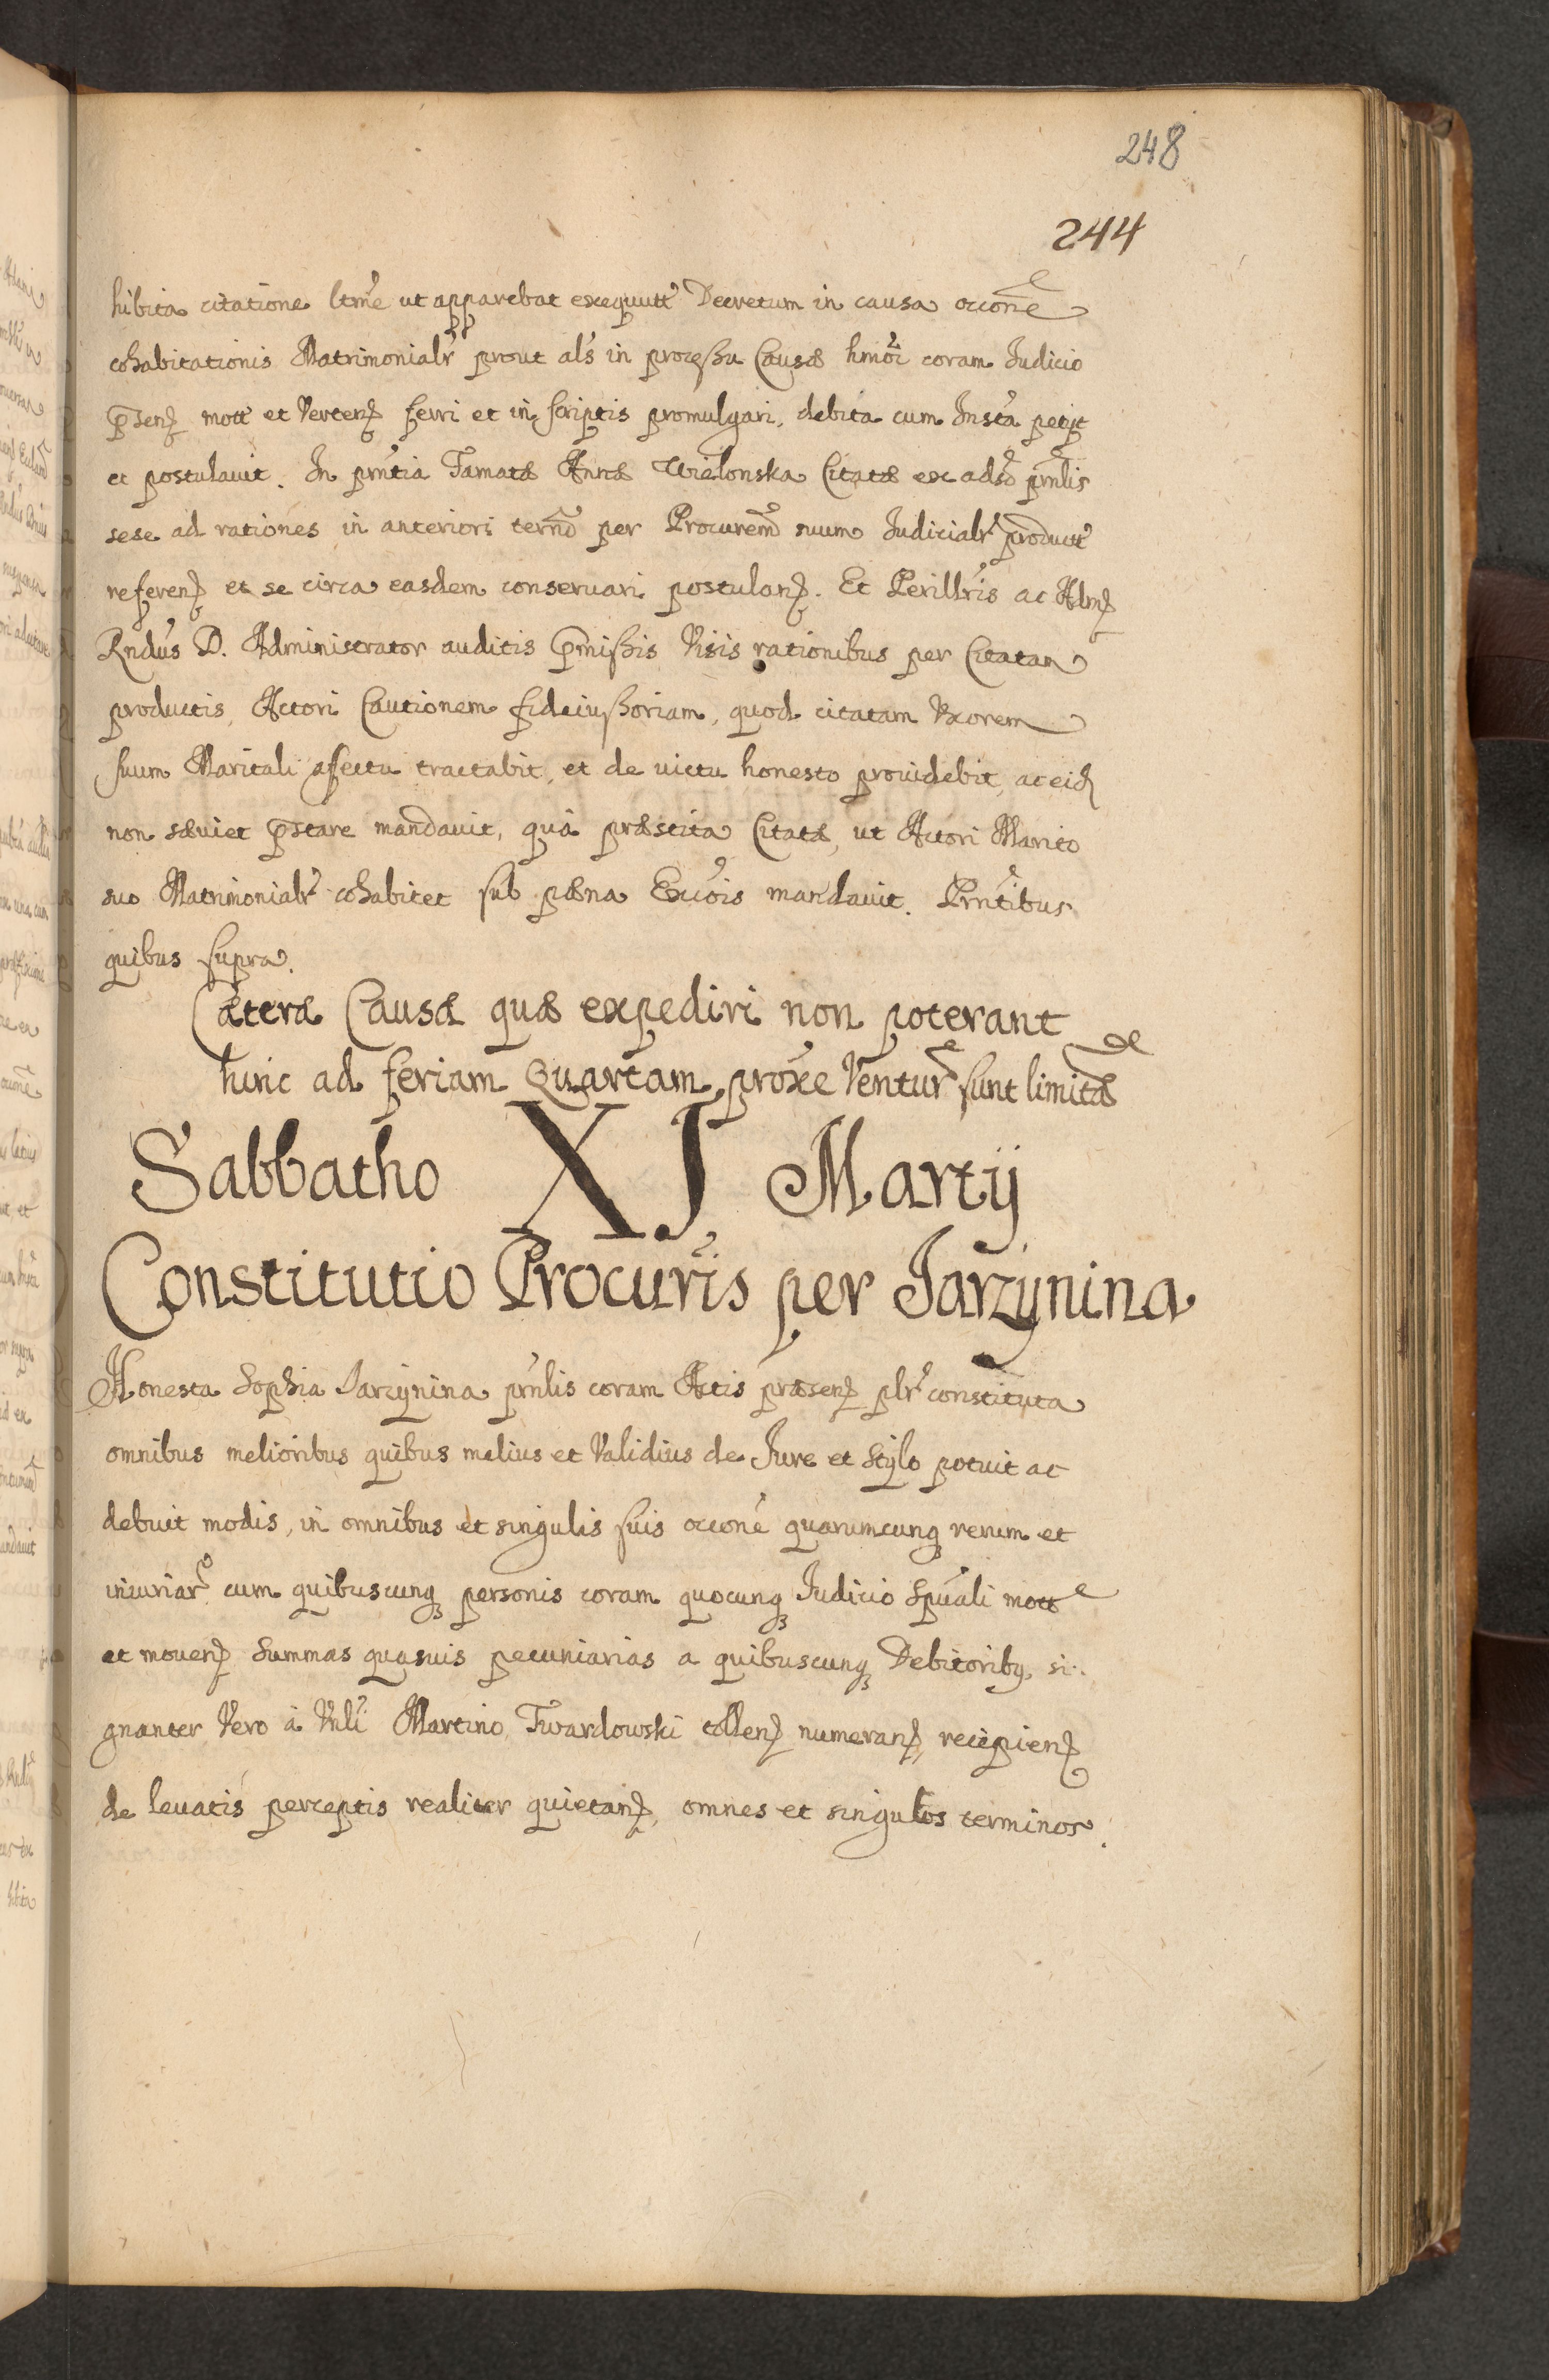 248
244
hibita citatione ltme ut apparebat exequutt Decretum in causa occone
cohabitationis Matrimonialr prout als in processu Causæ hmoi coram Iudicio
pŝen mott et Verten ferri et in scriptis promulgari, debita cum Insta petyt
et postulauit. In prntia Famatæ Annæ Wielonska Citatæ ex adso prnlis
sese ad rationes in anteriori termo per Procurem suum Iudicialr productt
referen et se circa easdem conseruari postulan. Et Perillris ac Adm
Rndus D. Administrator auditis pmissis Visis rationibus per Citatam
productis, Actori Cautionem fideiussoriam, quod citatam Vxorem
suum Maritali afectu tractabit, et de uictu honesto prouidebit, ac eid
non sæuiet pstare mandauit, quâ præstita Citatæ, ut Actori Marito
suo Matrimonialr cohabitet sub pæna Excois mandauit. Prntibus
quibus supra.
Cæteræ Causæ quæ expediri non poterant
hinc ad feriam Quartam proxe Ventur sunt limitæ
Sabbatho XI Martij
Constitutio Procuris per Jarzynina
Honesta Sophia Jarzynina prnlis coram Actis præsen plr constituta
omnibus melioribus quibus melius et Validius de Iure et Stylo potuit ac
debuit modis, in omnibus et singulis suis occone quarumcunq rerum et
iniuriar cum quibuscunq personis coram quocunq Iudicio Spuali mott
et mouen Summas quasuis pecuniarias a quibuscunq Debitoribq, si-
gnanter Vero à Vnli Martino Twardowski tollen numeran, recipien
de leuatis perceptis realiter quietan, omnes et singulos terminos